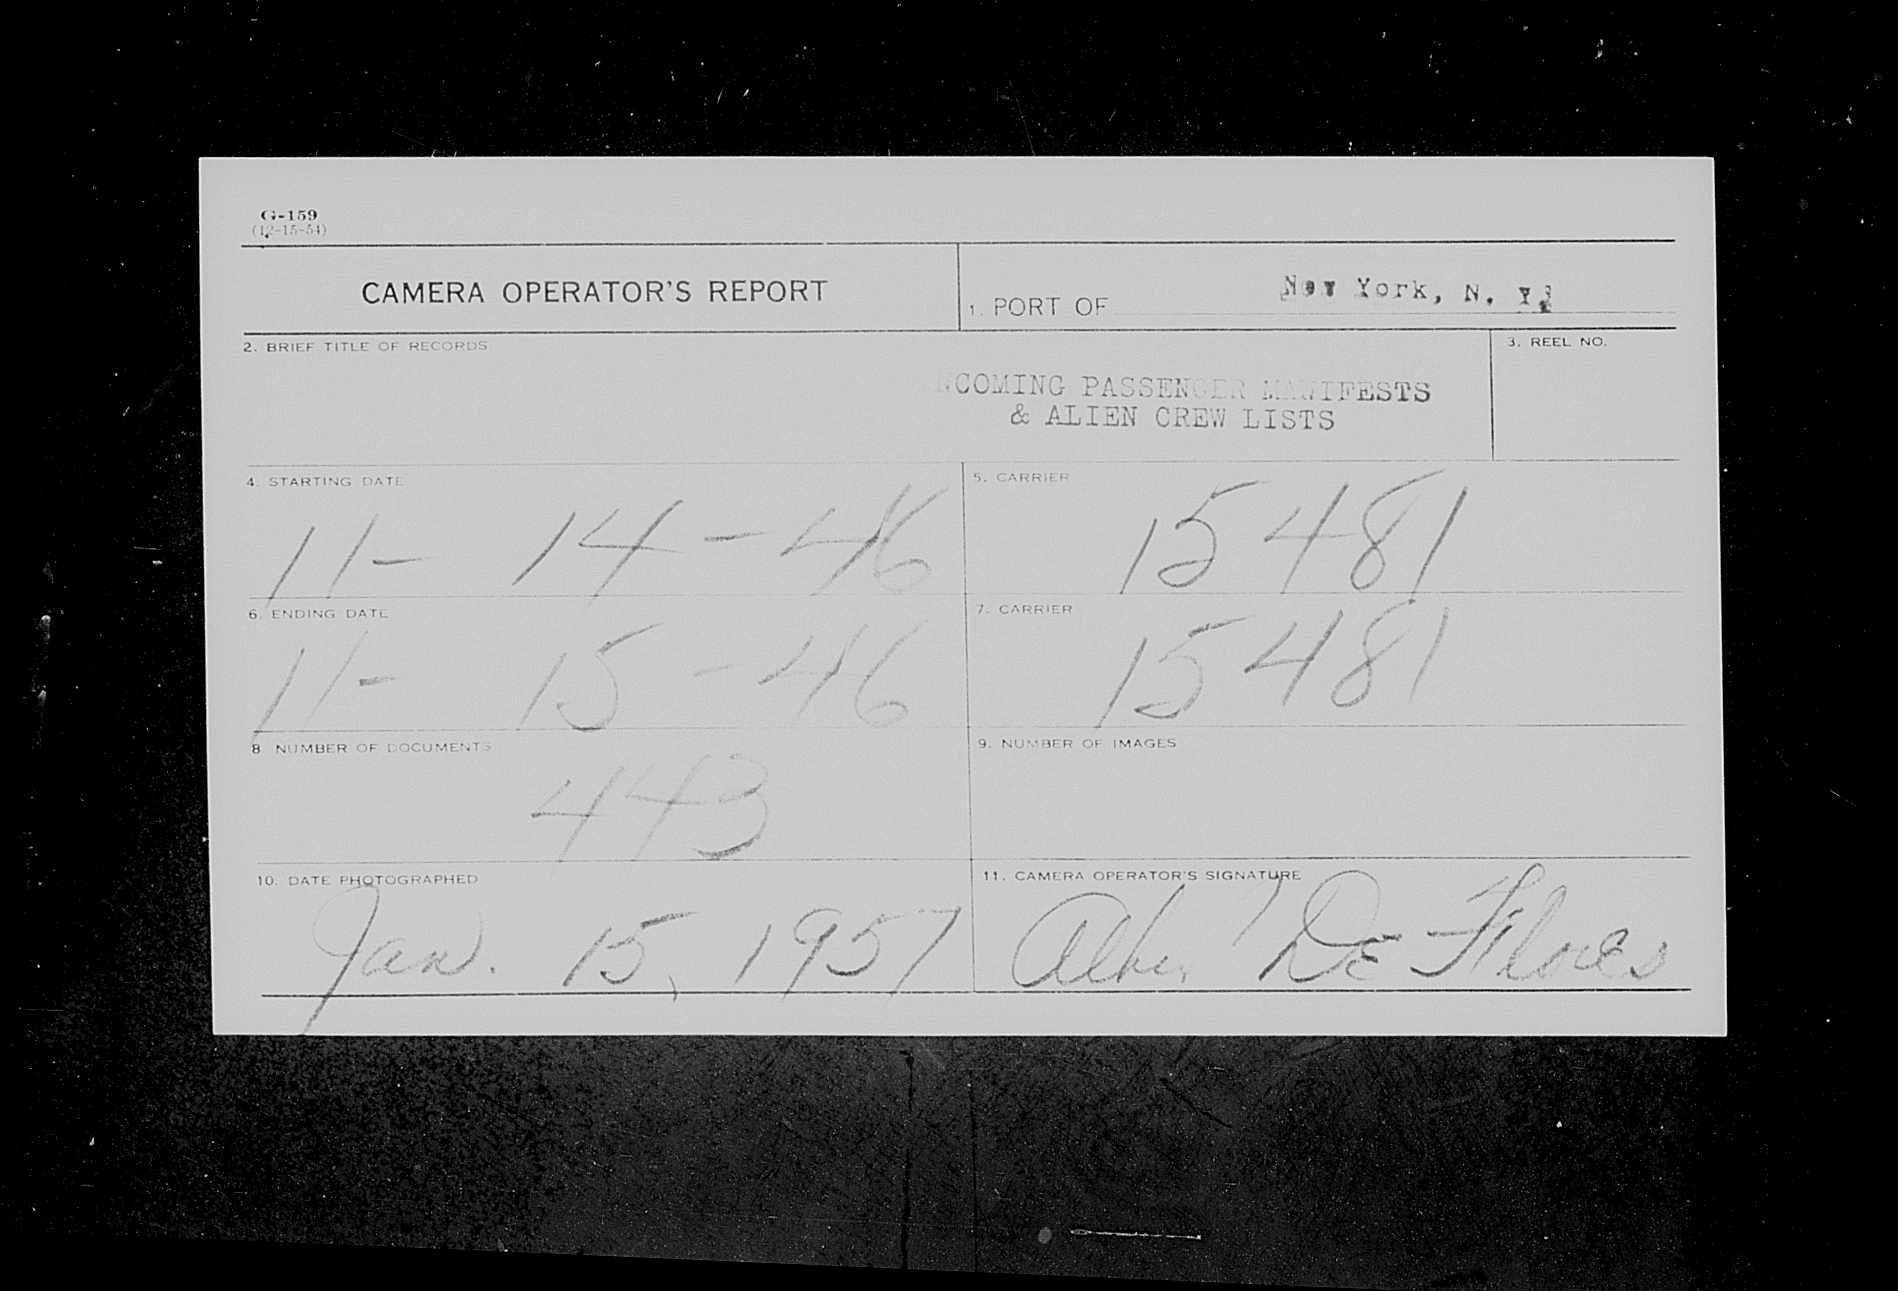 G-159
(12-15-54)
CAMERA OPERATOR'S REPORT
1. PORT OF New York, N. Y.
2. BRIEF TITLE OF RECORDS
3. REEL NO.
NCOMING PASSENGER MANIFESTS
& ALIEN CREW LISTS
4. STARTING DATE
11- 14-46
5. CARRIER
15481
6. ENDING DATE
11- 15-46
7. CARRIER
15481
8. NUMBER OF DOCUMENTS
443
9. NUMBER OF IMAGES
10. DATE PHOTOGRAPHED
Jan. 15, 1957
11. CAMERA OPERATOR'S SIGNATURE
De